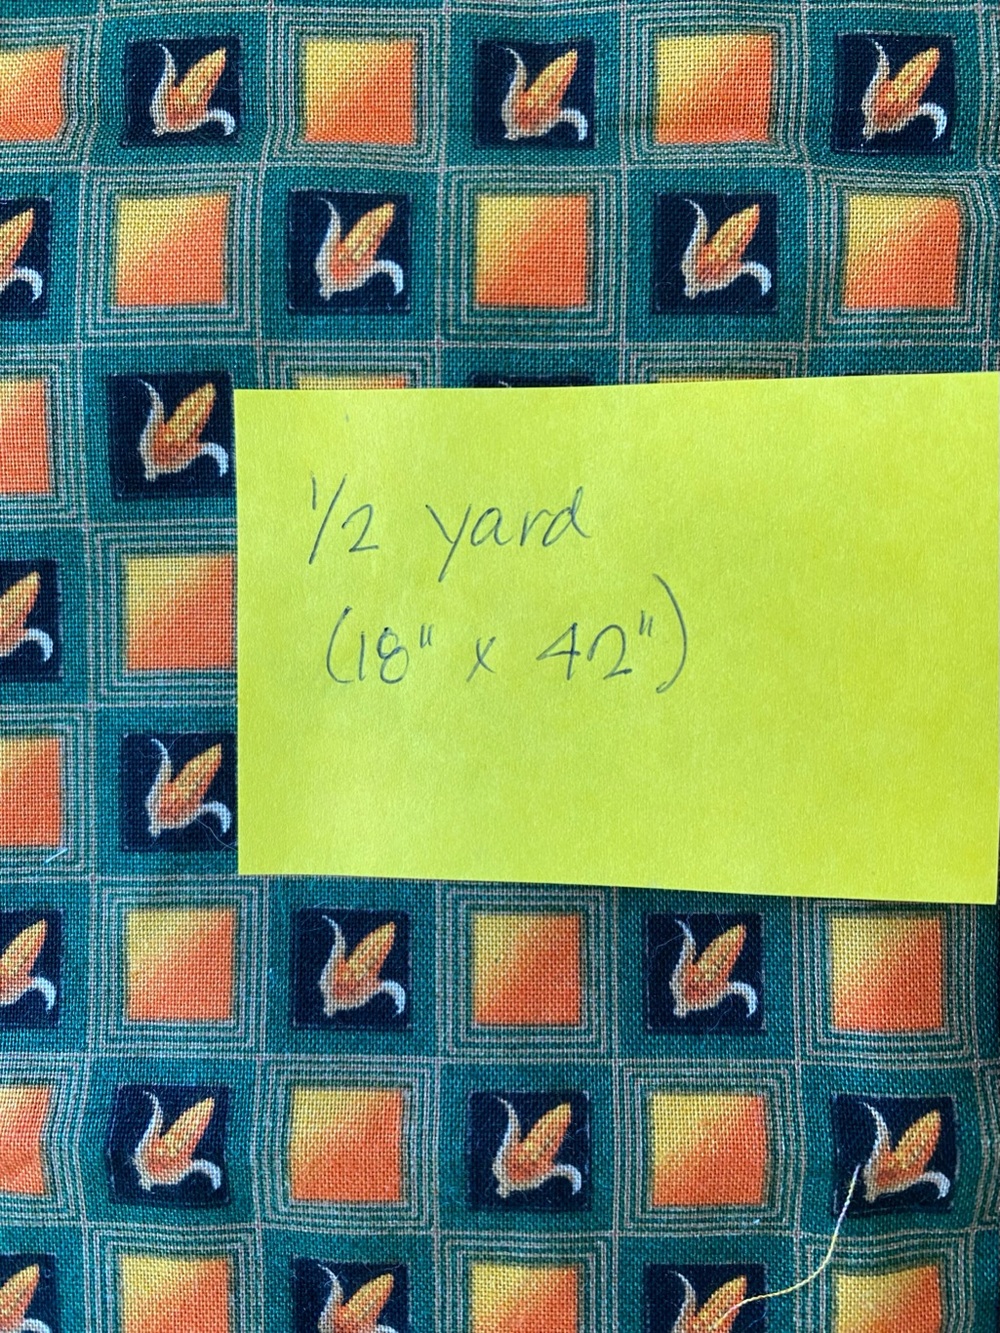 1/2 yard
(18" x 42")